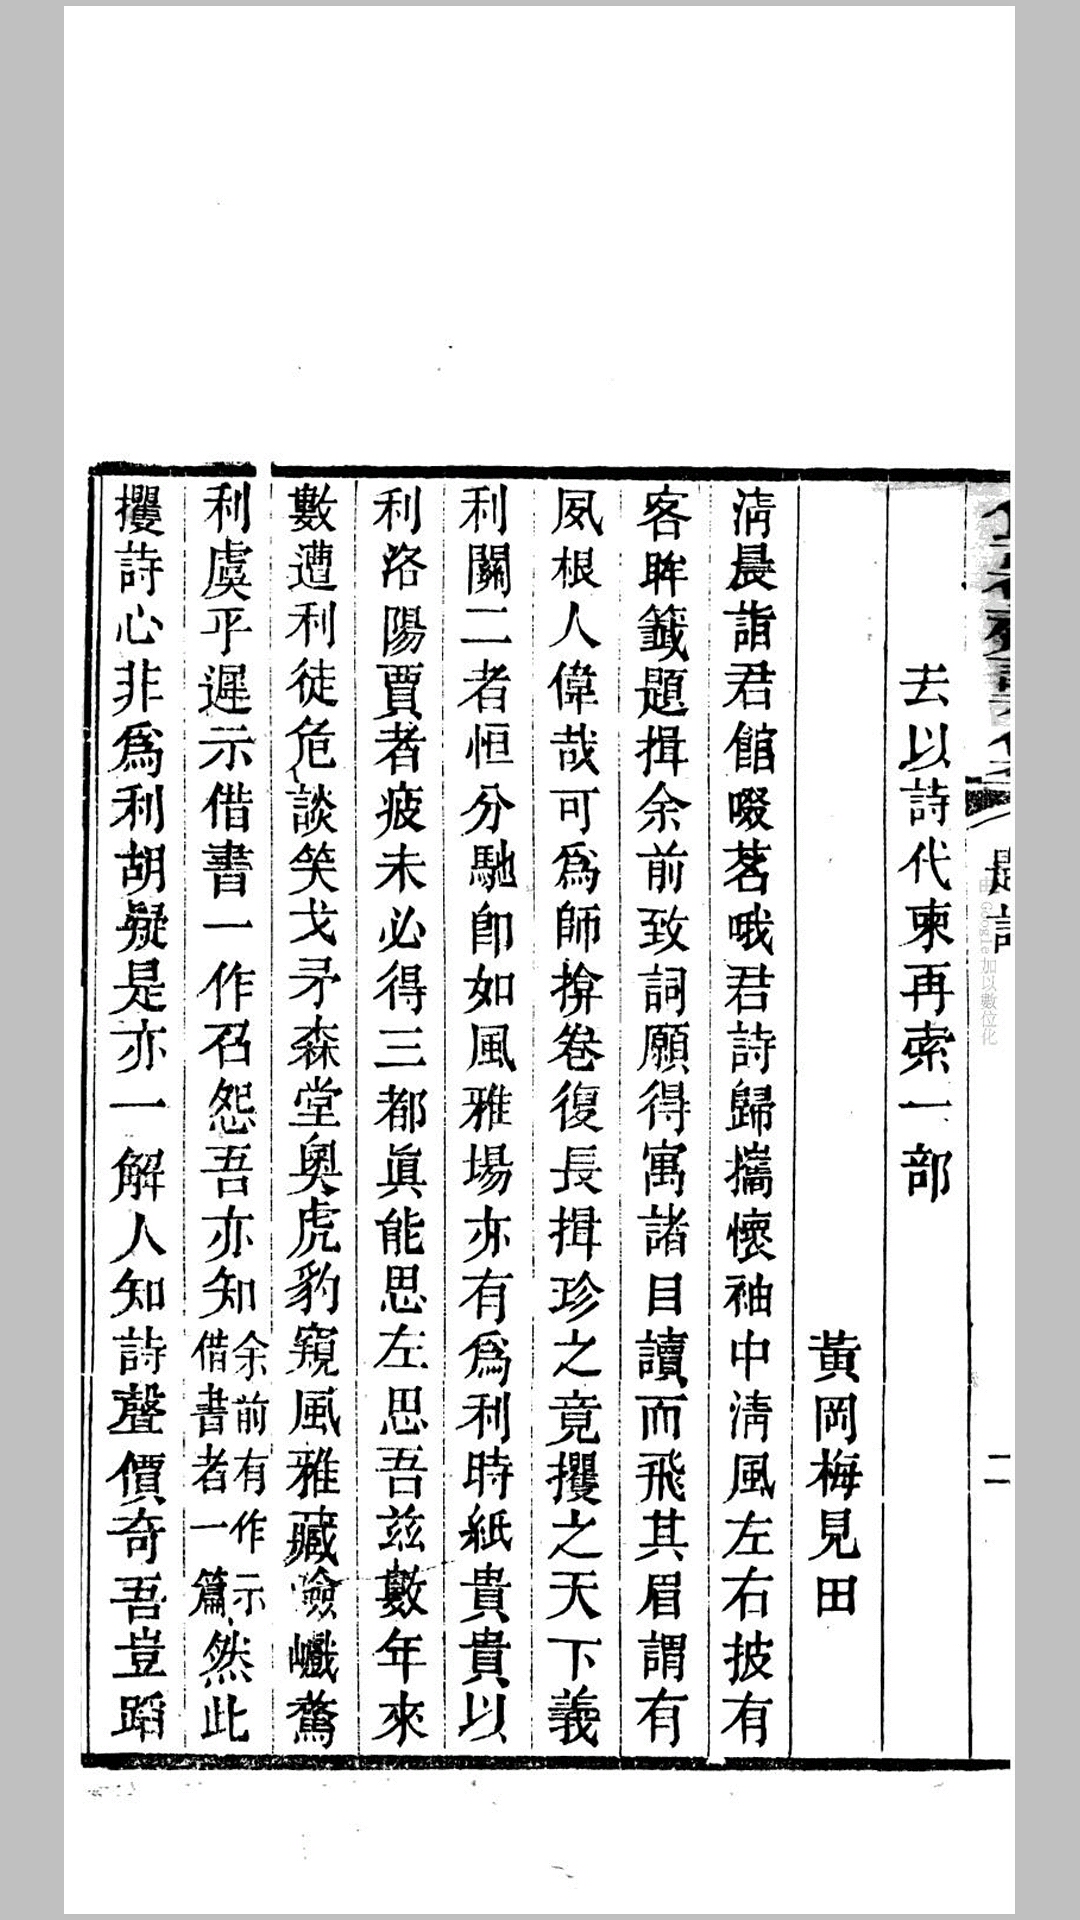 題詩
二
去以詩代柬再索一部
黃岡梅見田
淸晨詣君館啜茗哦君詩歸攜懷袖中淸風左右披有
客眸籖題揖余前致詞願得寓諸目讀而飛其眉謂有
夙根人偉哉可爲師揜卷復長揖珍之竟攫之天下義
利關二者恒分馳卽如風雅場亦有爲利時紙貴貴以
利洛陽賈者疲未必得三都眞能思左思吾兹數年來
數遭利徒危談笑戈矛森堂奥虎豹窺風雅藏嶮巇鶩
利虞乎遲示借書一作召怨吾亦知余前有作示借書者一篇然此
攫詩心非爲利胡疑是亦一解人知詩聲價奇吾豈蹈
由 Google 加以數位化